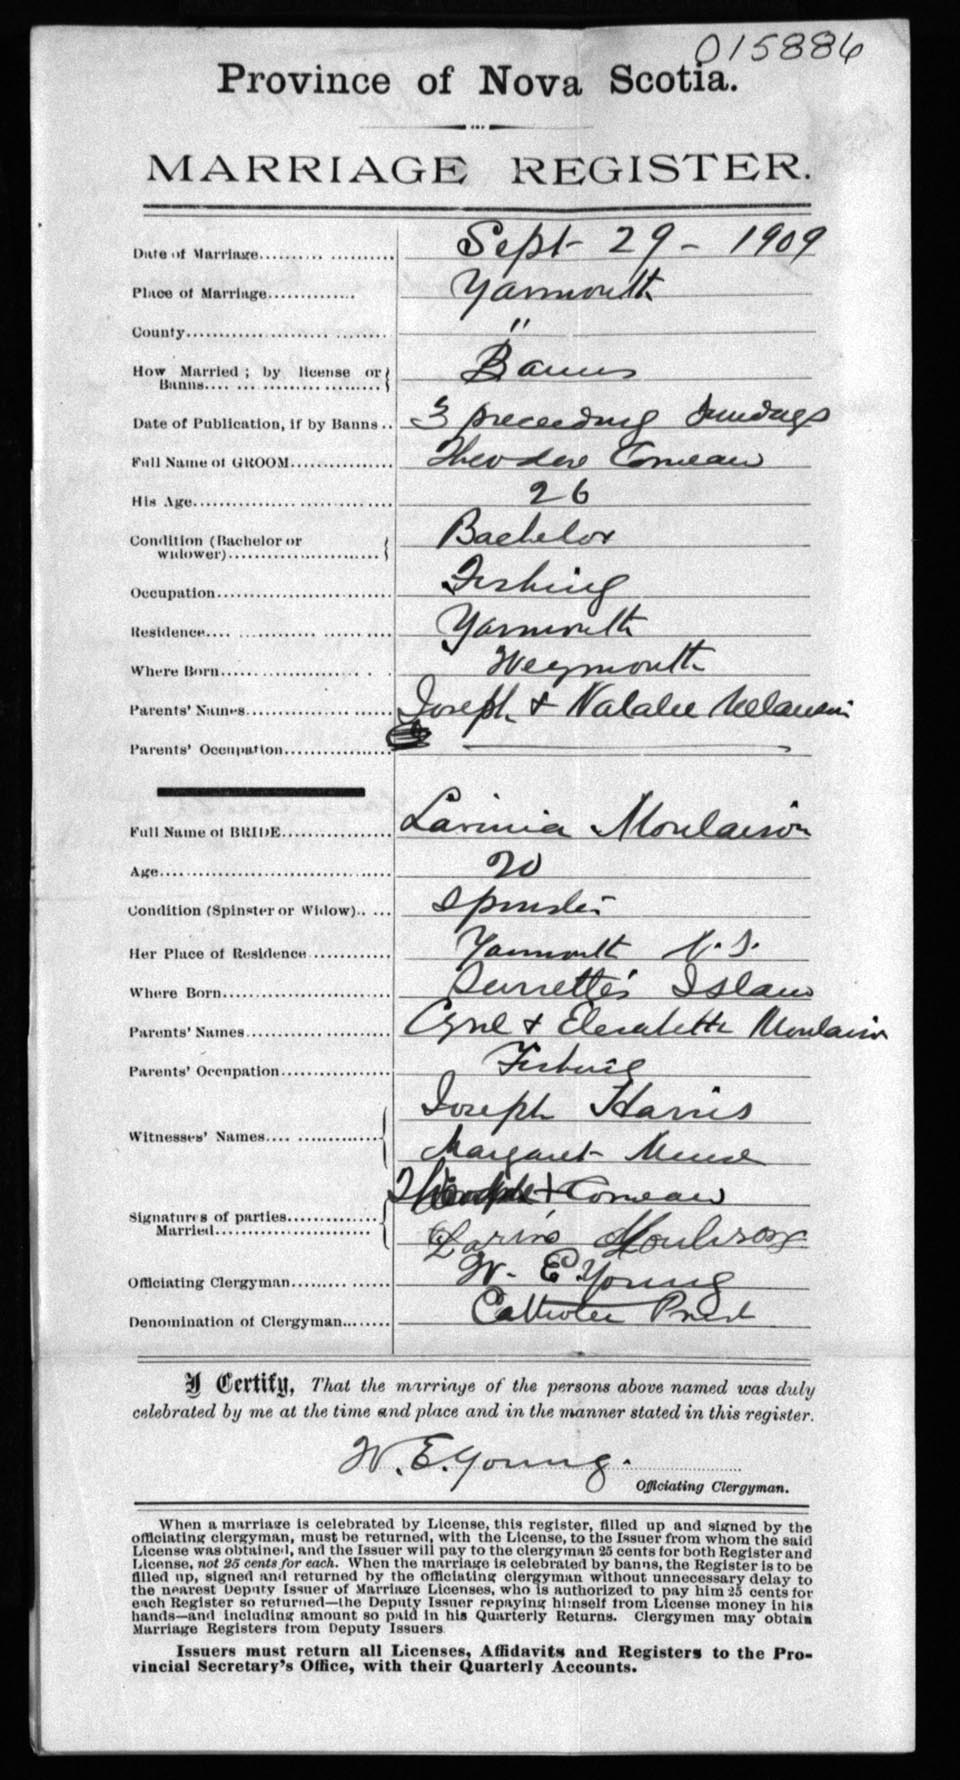 015886
Province of Nova Scotia.
MARRIAGE REGISTER.
Date of Marriage.................... Sept 29 - 1909
Place of Marriage.............. Yarmouth
County.......................... "
How Married; by license or Banns.................... Banns
Date of Publication, if by Banns.. 3 preceeding Sundays
Full Name of GROOM............... Theodore Comeau
His Age............................. 26
Condition (Bachelor or widower)........................ Bachelor
Occupation.......................... Fishing
Residence.......................... Yarmouth
Where Born...................... Weymouth
Parents' Names...................... Joseph & Natalie Melanson
Parents' Occupation................
Full Name of BRIDE................ Lavinia Moulaison
Age.................................. 20
Condition (Spinster or Widow)..... Spinster
Her Place of Residence............ Yarmouth N.S.
Where Born......................... Surrette's Island
Parents' Names...................... Cyril & Elizabeth Moulaison
Parents' Occupation................ Fishing
Witnesses' Names.................. Joseph Harris
Margaret Muise
Signatures of parties Married......................... + Comeau
Officiating Clergyman............... W. E Young
Denomination of Clergyman........ Catholic Priest
I Certify, That the marriage of the persons above named was duly
celebrated by me at the time and place and in the manner stated in this register.
W. E. Young.
Officiating Clergyman.
When a marriage is celebrated by License, this register, filled up and signed by the
officiating clergyman, must be returned, with the License, to the Issuer from whom the said
License was obtained, and the Issuer will pay to the clergyman 25 cents for both Register and
License, not 25 cents for each. When the marriage is celebrated by banns, the Register is to be
filled up, signed and returned by the officiating clergyman without unnecessary delay to
the nearest Deputy Issuer of Marriage Licenses, who is authorized to pay him 25 cents for
each Register so returned—the Deputy Issuer repaying himself from License money in his
hands—and including amount so paid in his Quarterly Returns. Clergymen may obtain
Marriage Registers from Deputy Issuers
Issuers must return all Licenses, Affidavits and Registers to the Pro-
vincial Secretary's Office, with their Quarterly Accounts.